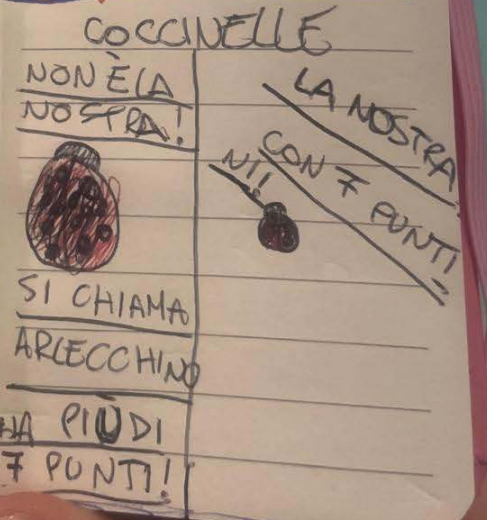 COCCINELLE
NON È LA
NOSTRA!
SI CHIAMA
ARLECCHINO
HA PIÙ DI
7 PUNTI!
LA NOSTRA
CON 7 PUNTI
NI!!